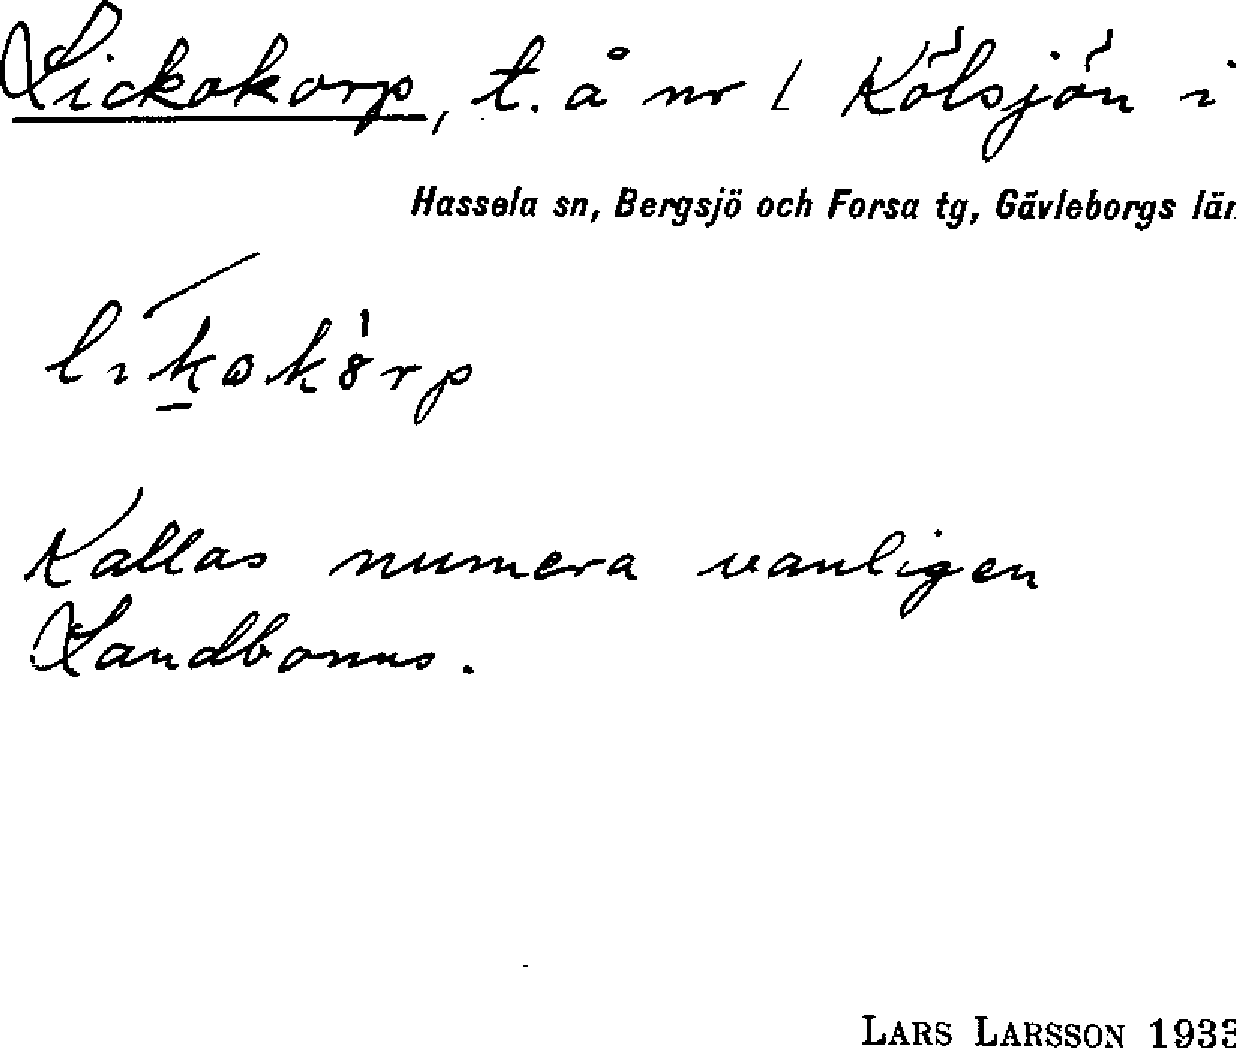 Lickokorp, t. å nr 1 Kölsjön i
Hassela sn, Bergsjö och Forsa tg, Gävleborgs län
Kallas numera vanligen
Landbonus.
LARS LARSSON 193